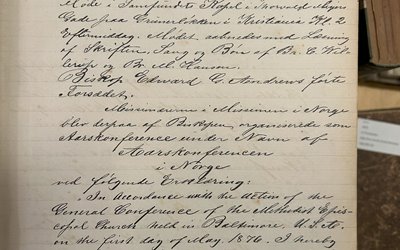 Møde i Samfundets Kapel i Thorvald Meyers
Gade paa Grünerløkken i Kristiania Kl. 2
Eftermiddag. Mødet aabnedes med Læsning
af Skriften, Sang og Bøn af Br. C. Wil-
lerup og Br. M. Hansen.
Biskop Edward G. Andrews førte
Forsædet.
Missionærerne i Missionen i Norge
blev derpaa af Biskopen, organiserede som
Aarskonference under Navn af
Aarskonferencen
i Norge
ved følgende Erklæring:
"In Accordance with the action of the
General Conference of the Methodist Epis-
copal Church held in Baltimore, U.S. of A.
on the first day of May 1876, I hereby